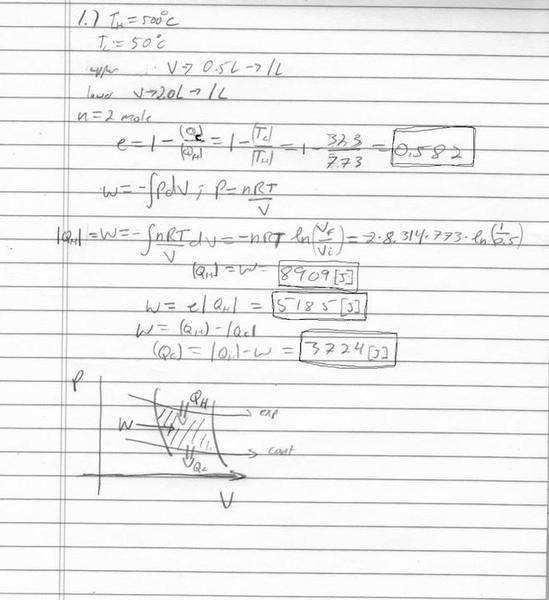 1.) T_H = 500°C
T_C = 50°C
upper : V → 0.5L → 1L
lower V → 2.0L → 1L
n = 2 mole
e = 1 - |Q_C|/|Q_H| = 1 - |T_C|/|T_H| = 1 - 323/773 = 0.582
w = -∫PdV ; P = nRT/V
|Q_H| = W = -∫nRT/V dV = -nRT ln(V_f/V_i) = -2·8.314·773·ln(1/0.5)
|Q_H| = W = 8909[J]
W = e|Q_H| = 5185[J]
W = |Q_H| - |Q_C|
|Q_C| = |Q_H| - W = 3724[J]
P
Q_H
exp
W
cont
Q_C
V